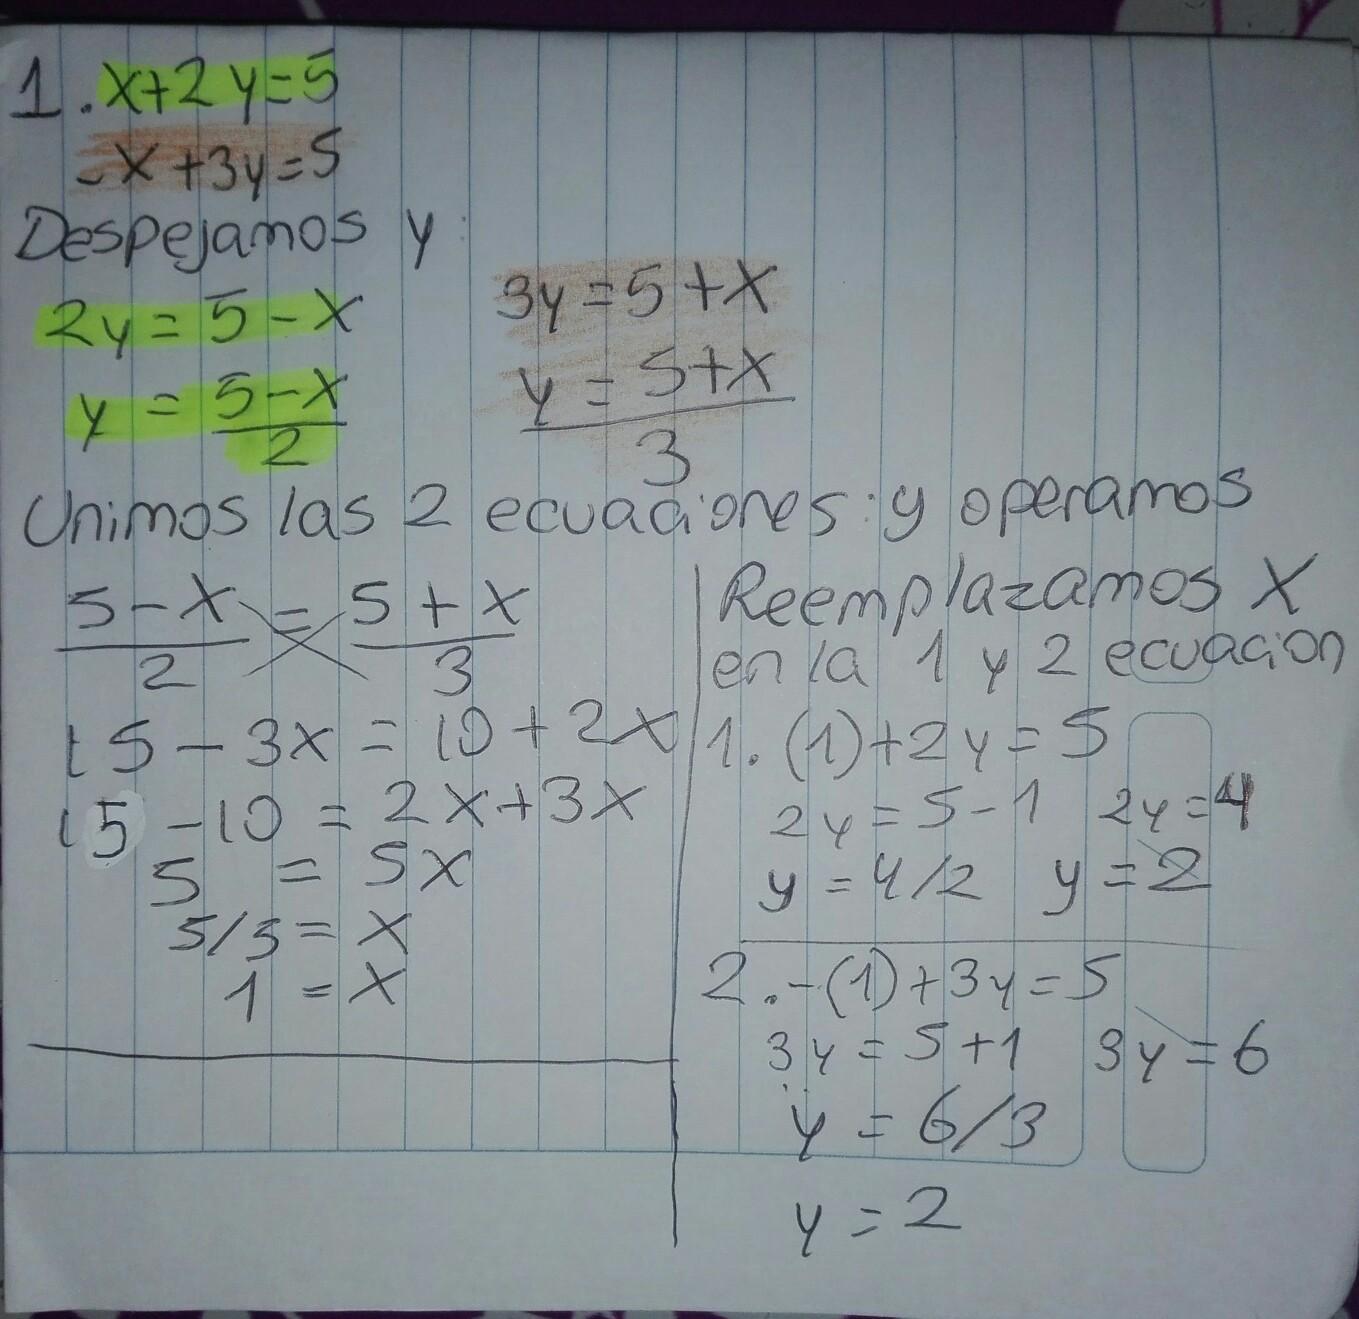 1. x+2y=5
-x+3y=5
Despejamos y
2y=5-x
y = 5-x
2
3y=5+x
y = 5+x
3
Unimos las 2 ecuaciones: y operamos
5-x = 5+x
2 3
15-3x = 10+2x
15-10 = 2x+3x
5 = 5x
5/5 = x
1 = x
Reemplazamos x
en la 1 y 2 ecuacion
1. (1)+2y=5
2y=5-1 2y=4
y=4/2 y=2
2. -(1)+3y=5
3y=5+1 3y=6
y=6/3
y=2